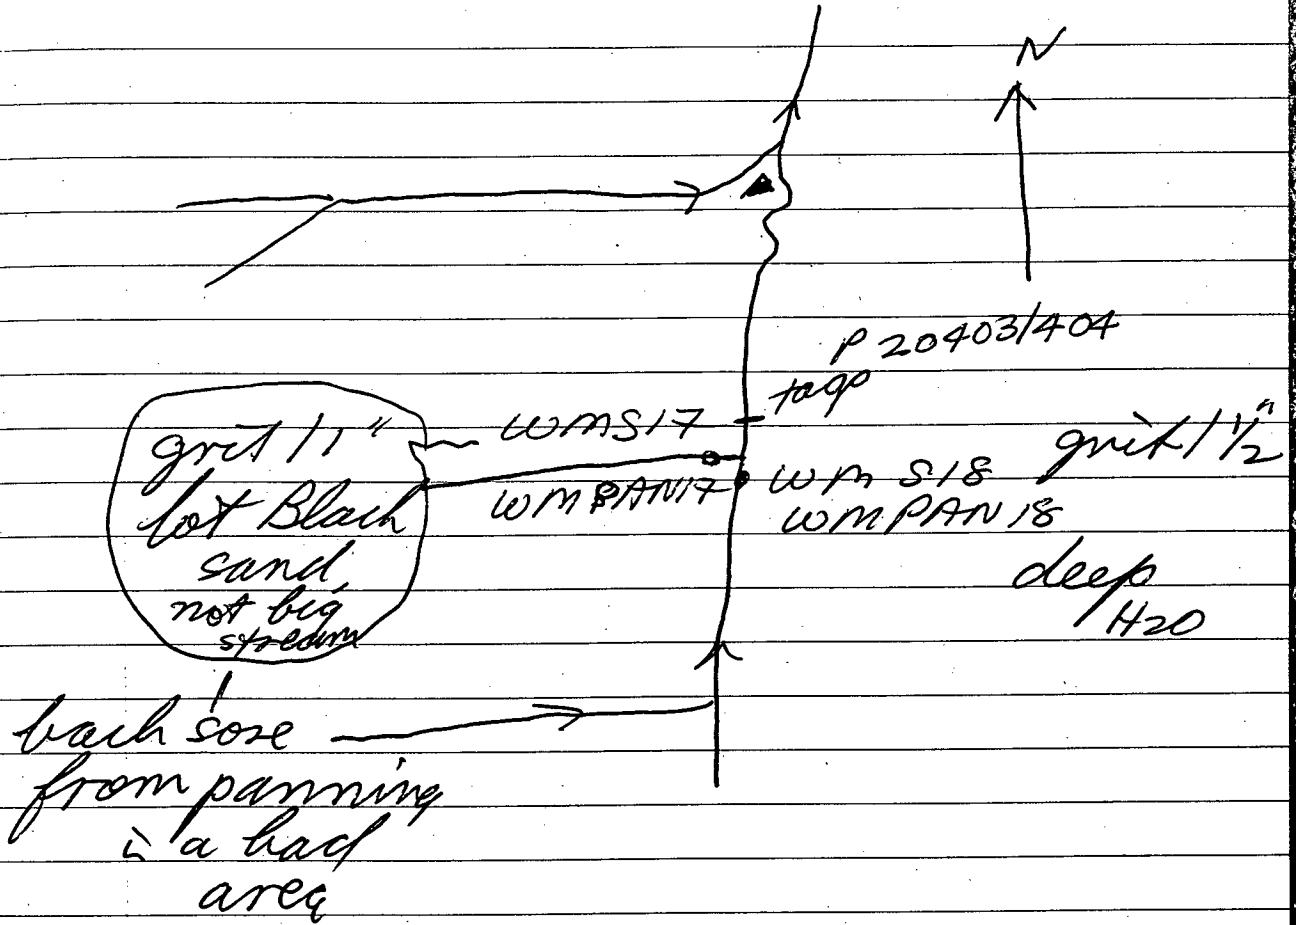 N
P 20403/404
tags
WMS17
grit / 1"
lot Black
sand,
not big
stream
WMPAN17
WM S18
WMPAN 18
grit / 1 1/2"
deep
H2O
back sore
from panning
in a bad
area